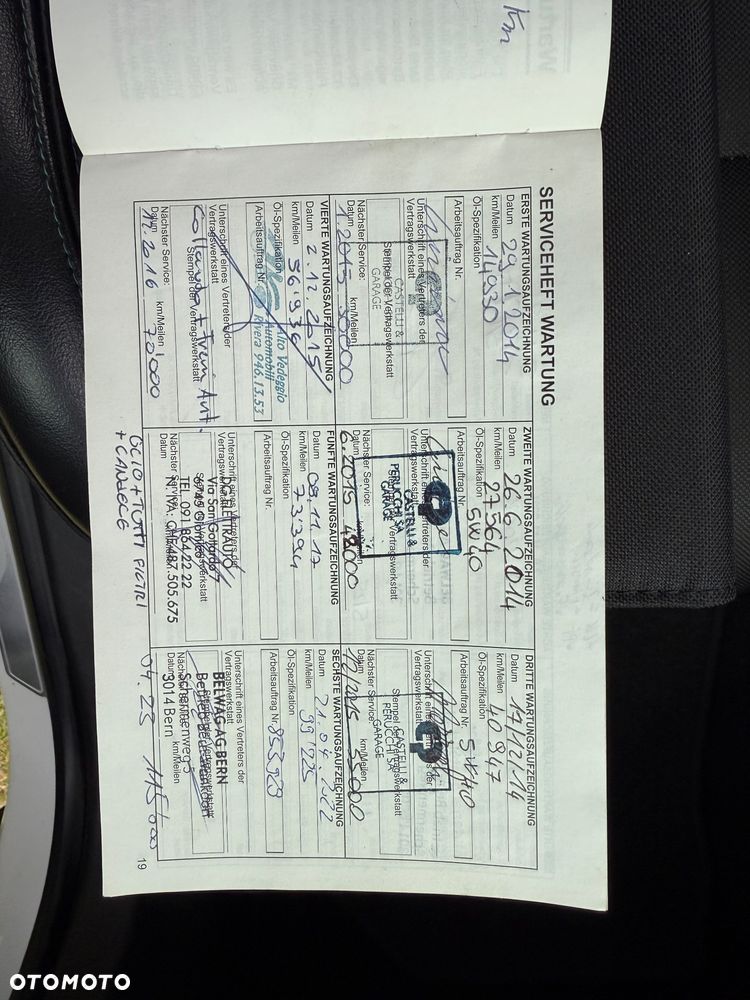 Km
SERVICEHEFT WARTUNG
ERSTE WARTUNGSAUFZEICHNUNG
Datum 29.1.2014
km/Meilen 14930
Öl-Spezifikation
Arbeitsauftrag Nr.
Unterschrift eines Vertreters der
Vertragswerkstatt
CASTELLI &
Stempel der Vertragswerkstatt
GARAGE
Nächster Service:
Datum km/Meilen
1.2015 30000
ZWEITE WARTUNGSAUFZEICHNUNG
Datum 26.6.2014
km/Meilen 27564
Öl-Spezifikation 5W40
Arbeitsauftrag Nr.
Unterschrift eines Vertreters der
Vertragswerkstatt
CASTELLI &
PERUCCHI SA
GARAGE
Nächster Service:
Datum
6.2015 42000
DRITTE WARTUNGSAUFZEICHNUNG
Datum 17/12/14
km/Meilen 40947
Öl-Spezifikation
Arbeitsauftrag Nr. 5W40
Unterschrift eines Vertreters der
Vertragswerkstatt
CASTELLI &
Stempel der Vertragswerkstatt
PERUCCHI SA
GARAGE
Nächster Service:
Datum km/Meilen
12/2015 55000
VIERTE WARTUNGSAUFZEICHNUNG
Datum 2.12.2015
km/Meilen 56936
Öl-Spezifikation
Alto Vedeggio
Automobili
Rivera 946.13.53
Arbeitsauftrag Nr.
Unterschrift eines Vertreters der
Vertragswerkstatt
Stempel der Vertragswerkstatt
Nächster Service:
Datum km/Meilen
12.2016 70'000
FÜNFTE WARTUNGSAUFZEICHNUNG
Datum 09.11.17
km/Meilen 73'394
Öl-Spezifikation
Arbeitsauftrag Nr.
Unterschrift eines Vertreters der
Vertragswerkstatt
Via San Gottardo
6745 Giornico
TEL. 091 864 22 22
N. IVA: CHE-487.505.675
Nächster Service:
Datum
OLIO + TUTTI FILTRI
+ CANDELE
SECHSTE WARTUNGSAUFZEICHNUNG
Datum 21.04.2022
km/Meilen 99'225
Öl-Spezifikation
Arbeitsauftrag Nr. 853929
Unterschrift eines Vertreters der
Vertragswerkstatt
BELWAG AG BERN
Betrieb Bern-Neufeld
Schermenweg 5
3014 Bern
Nächster Service:
Datum km/Meilen
04.23 115'000
19
OTOMOTO